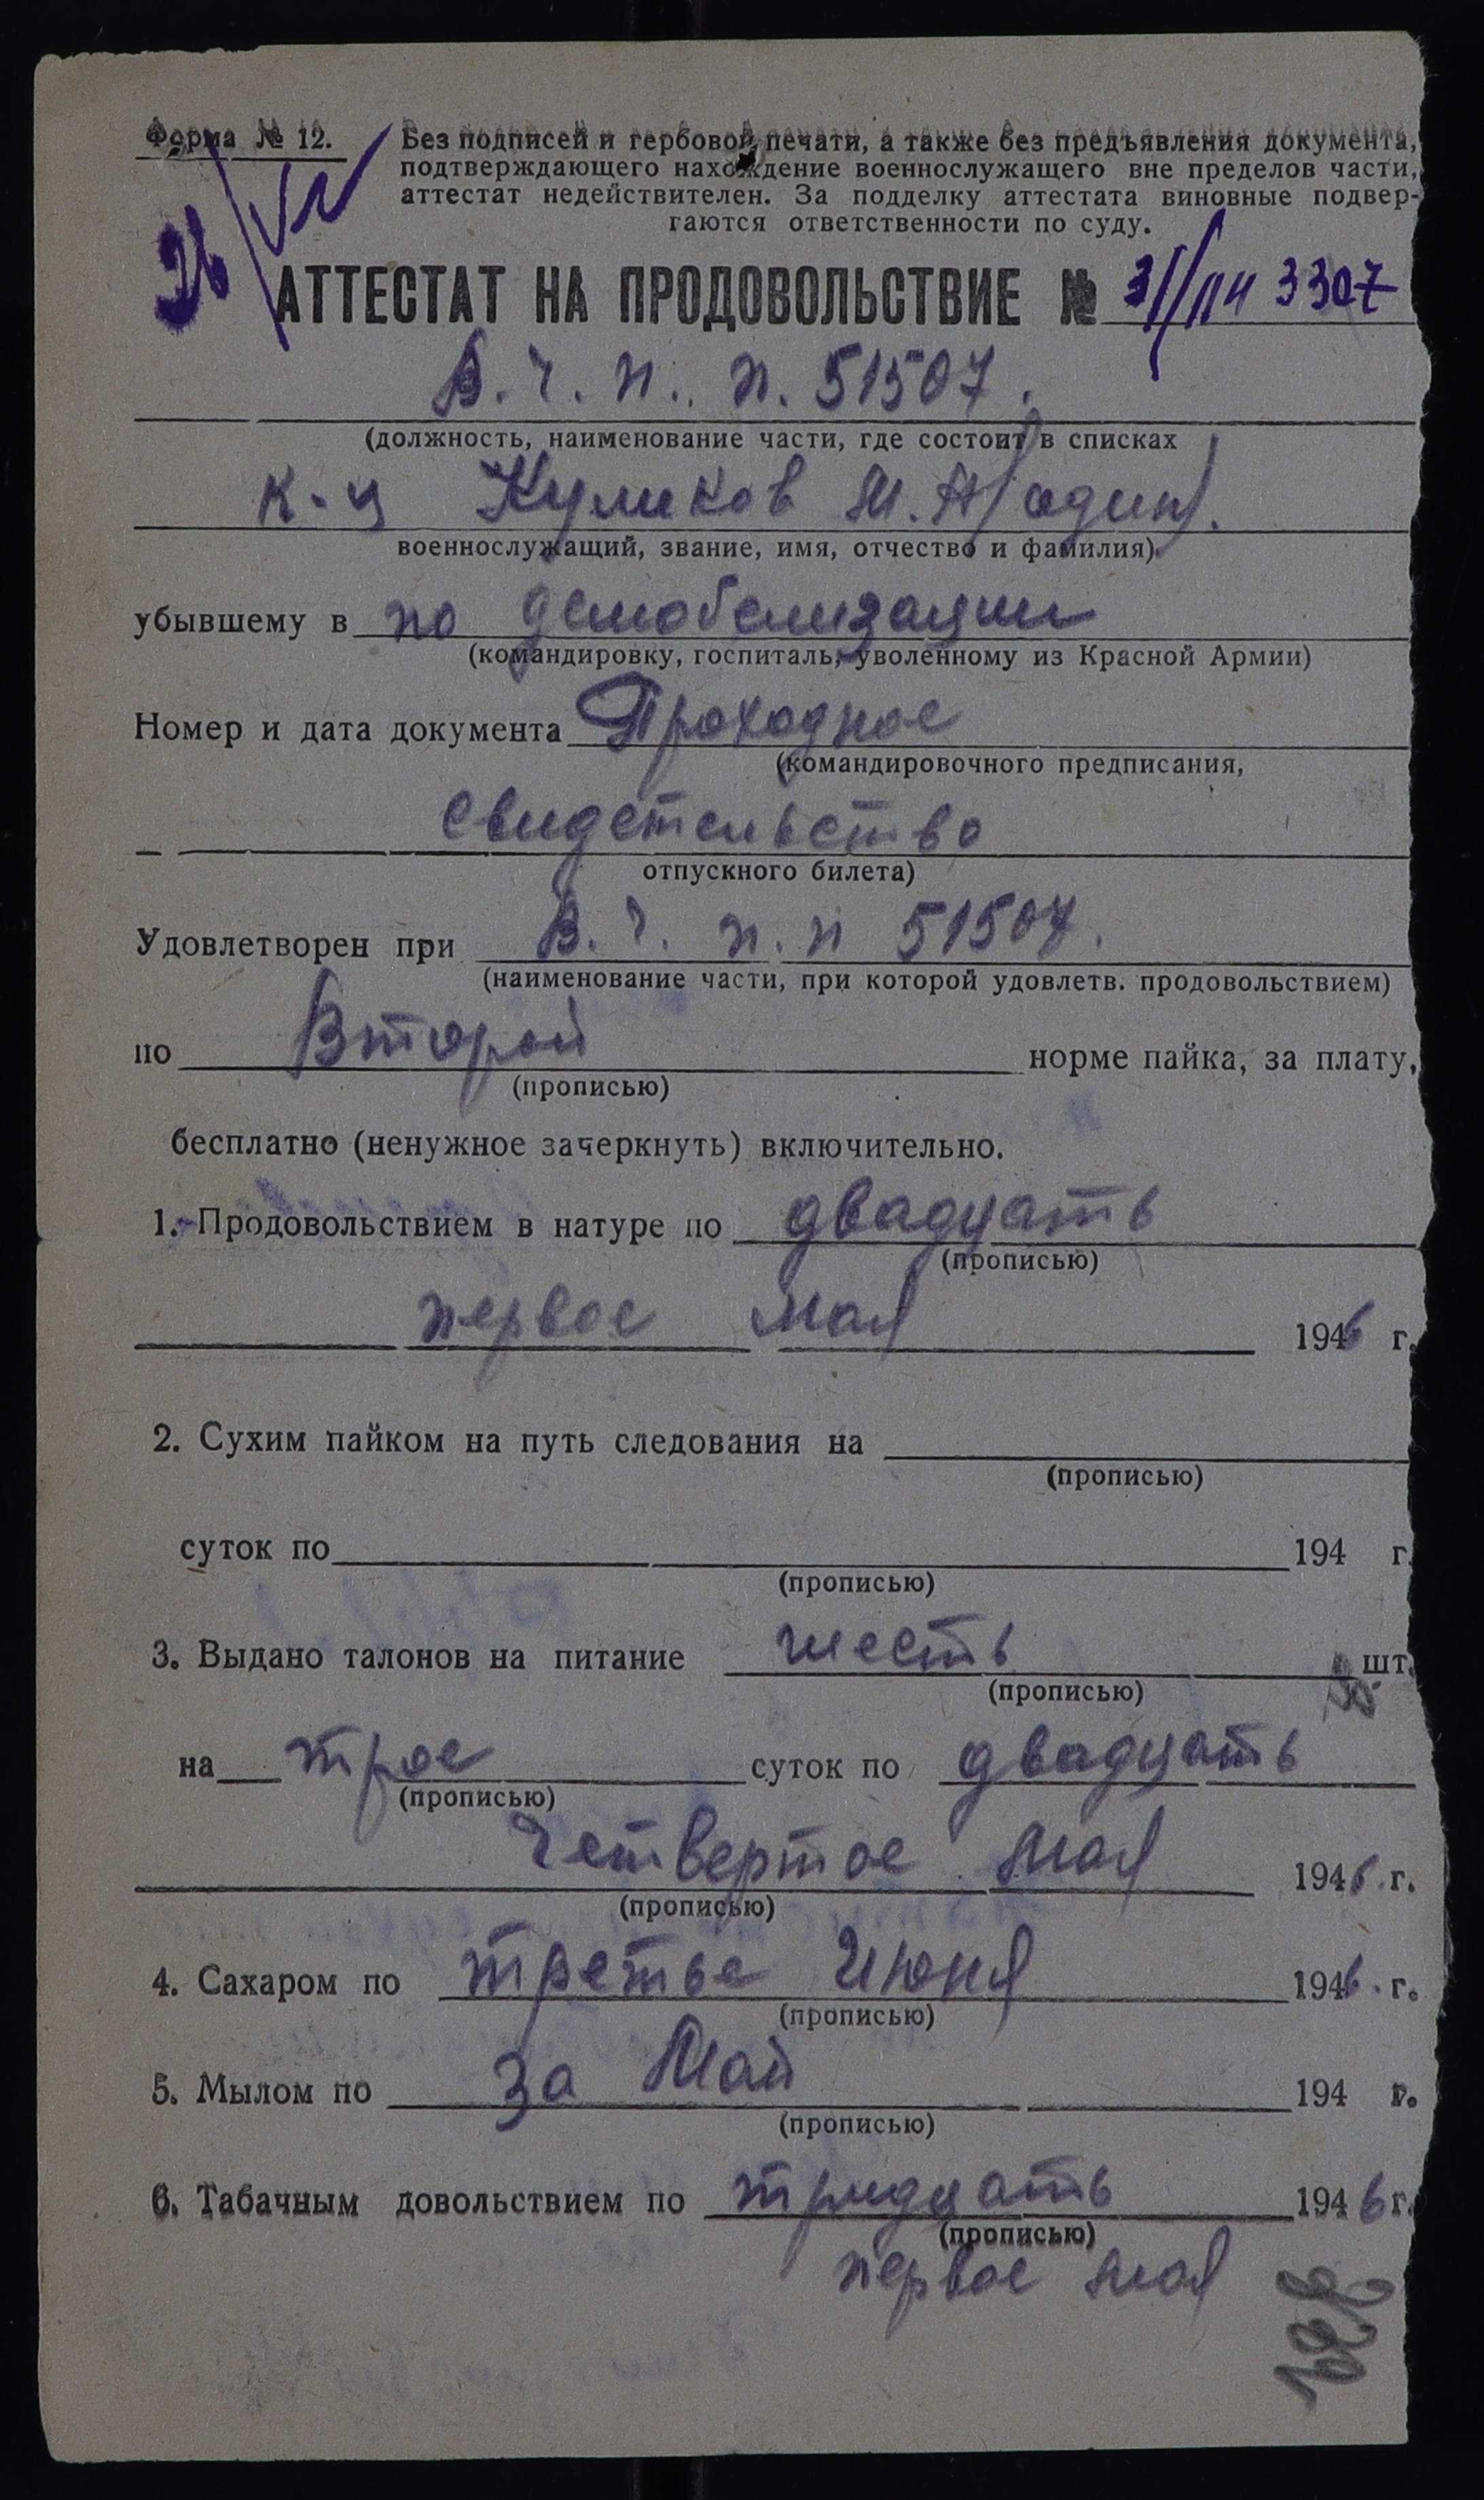 Форма № 12.
Без подписей и гербовой печати, а также без предъявления документа,
подтверждающего нахождение военнослужащего вне пределов части,
аттестат недействителен. За подделку аттестата виновные подвер-
гаются ответственности по суду.
26
АТТЕСТАТ НА ПРОДОВОЛЬСТВИЕ № 3307
В. Ч. п. п. 51507.
(должность, наименование части, где состоит в списках
к-ц Куликов М. А (один).
военнослужащий, звание, имя, отчество и фамилия)
убывшему в по демобелизации
(командировку, госпиталь, уволенному из Красной Армии)
Номер и дата документа Проходное
(командировочного предписания,
свидетельство
отпускного билета)
Удовлетворен при В. Ч. п. п 51507.
(наименование части, при которой удовлетв. продовольствием)
по Второй норме пайка, за плату,
(прописью)
бесплатно (ненужное зачеркнуть) включительно.
1. Продовольствием в натуре по двадцать
(прописью)
первое мая 1946 г.
2. Сухим пайком на путь следования на
(прописью)
суток по 194 г.
(прописью)
3. Выдано талонов на питание шесть шт.
(прописью)
на трое суток по двадцать
(прописью)
Четвертое мая 1946 г.
(прописью)
4. Сахаром по третье Июня 1946 г.
(прописью)
5. Мылом по за Май 194 г.
(прописью)
6. Табачным довольствием по тридцать 1946 г.
(прописью)
первое мая